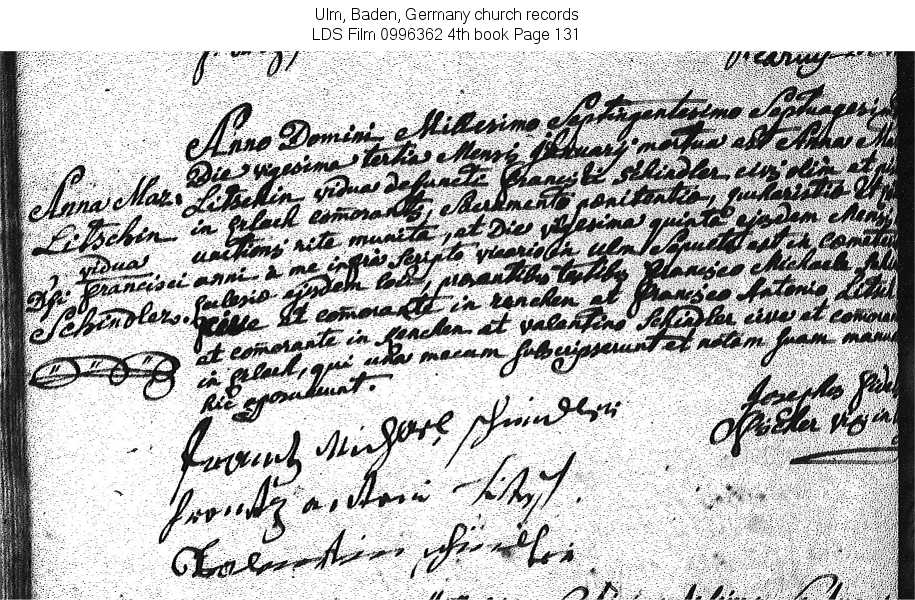 Ulm, Baden, Germany church records
LDS Film 0996362 4th book Page 131
Anno Domini Millesimo Septingentesimo Septuagesi
Die vigesima tertia Mensis Januarij mortua est Anna Ma
Litschin vidua defuncti Francisci Schindler civis olim et
in Erlach comorantis, Sacramento poenitentiae, Eucharistiae
unctionis rite munita, et Die vigesima quinta ejusdem Mensis
anni a me infra scripto vicario in Ulm Sepulta est in cameter
Ecclesiae ejusdem loci, praesentibus testibus Francisco Michaele
cive et comorante in renchen et Francisco Antonio Lits
et comorante in renchen et valentino Schindler cive et comoran
in Erlach, qui una mecum subscripserunt et notam suam manu
hic aposuerunt.
Anna Mar:
Litschin
vidua
Dfti Francisci
Schindler.
Josephus
Fischer
Frantz Michael schindler
frantz antoni Litsch
Valentin schindler